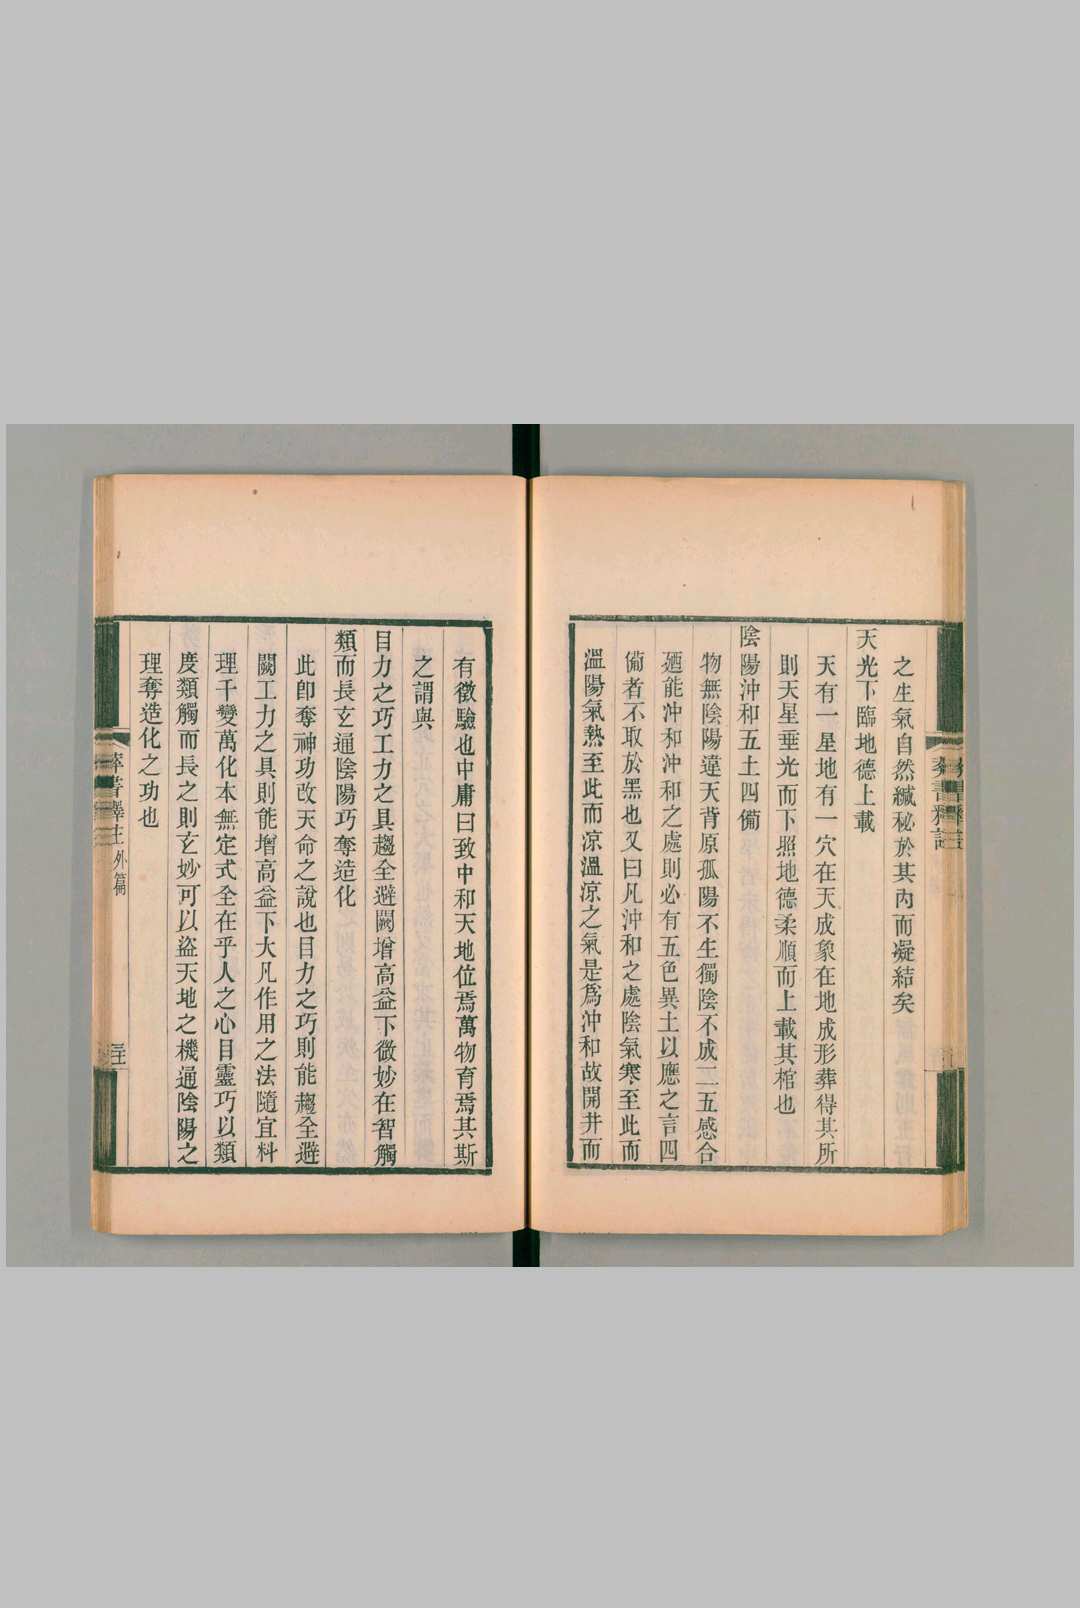 之生氣自然緘秘於其內而凝結矣
天光下臨地德上載
天有一星地有一穴在天成象在地成形葬得其所
則天星垂光而下照地德柔順而上載其棺也
陰陽沖和五土四備
物無陰陽違天背原孤陽不生獨陰不成二五感合
廼能沖和沖和之處則必有五色異土以應之言四
備者不取於黑也又曰凡沖和之處陰氣寒至此而
溫陽氣熱至此而凉溫凉之氣是爲沖和故開井而
有徵驗也中庸曰致中和天地位焉萬物育焉其斯
之謂與
目力之巧工力之具趨全避闕增高益下微妙在智觸
類而長玄通陰陽巧奪造化
此卽奪神功改天命之說也目力之巧則能趨全避
闕工力之具則能增高益下大凡作用之法隨宜料
理千變萬化本無定式全在乎人之心目靈巧以類
度類觸而長之則玄妙可以盜天地之機通陰陽之
理奪造化之功也
外篇